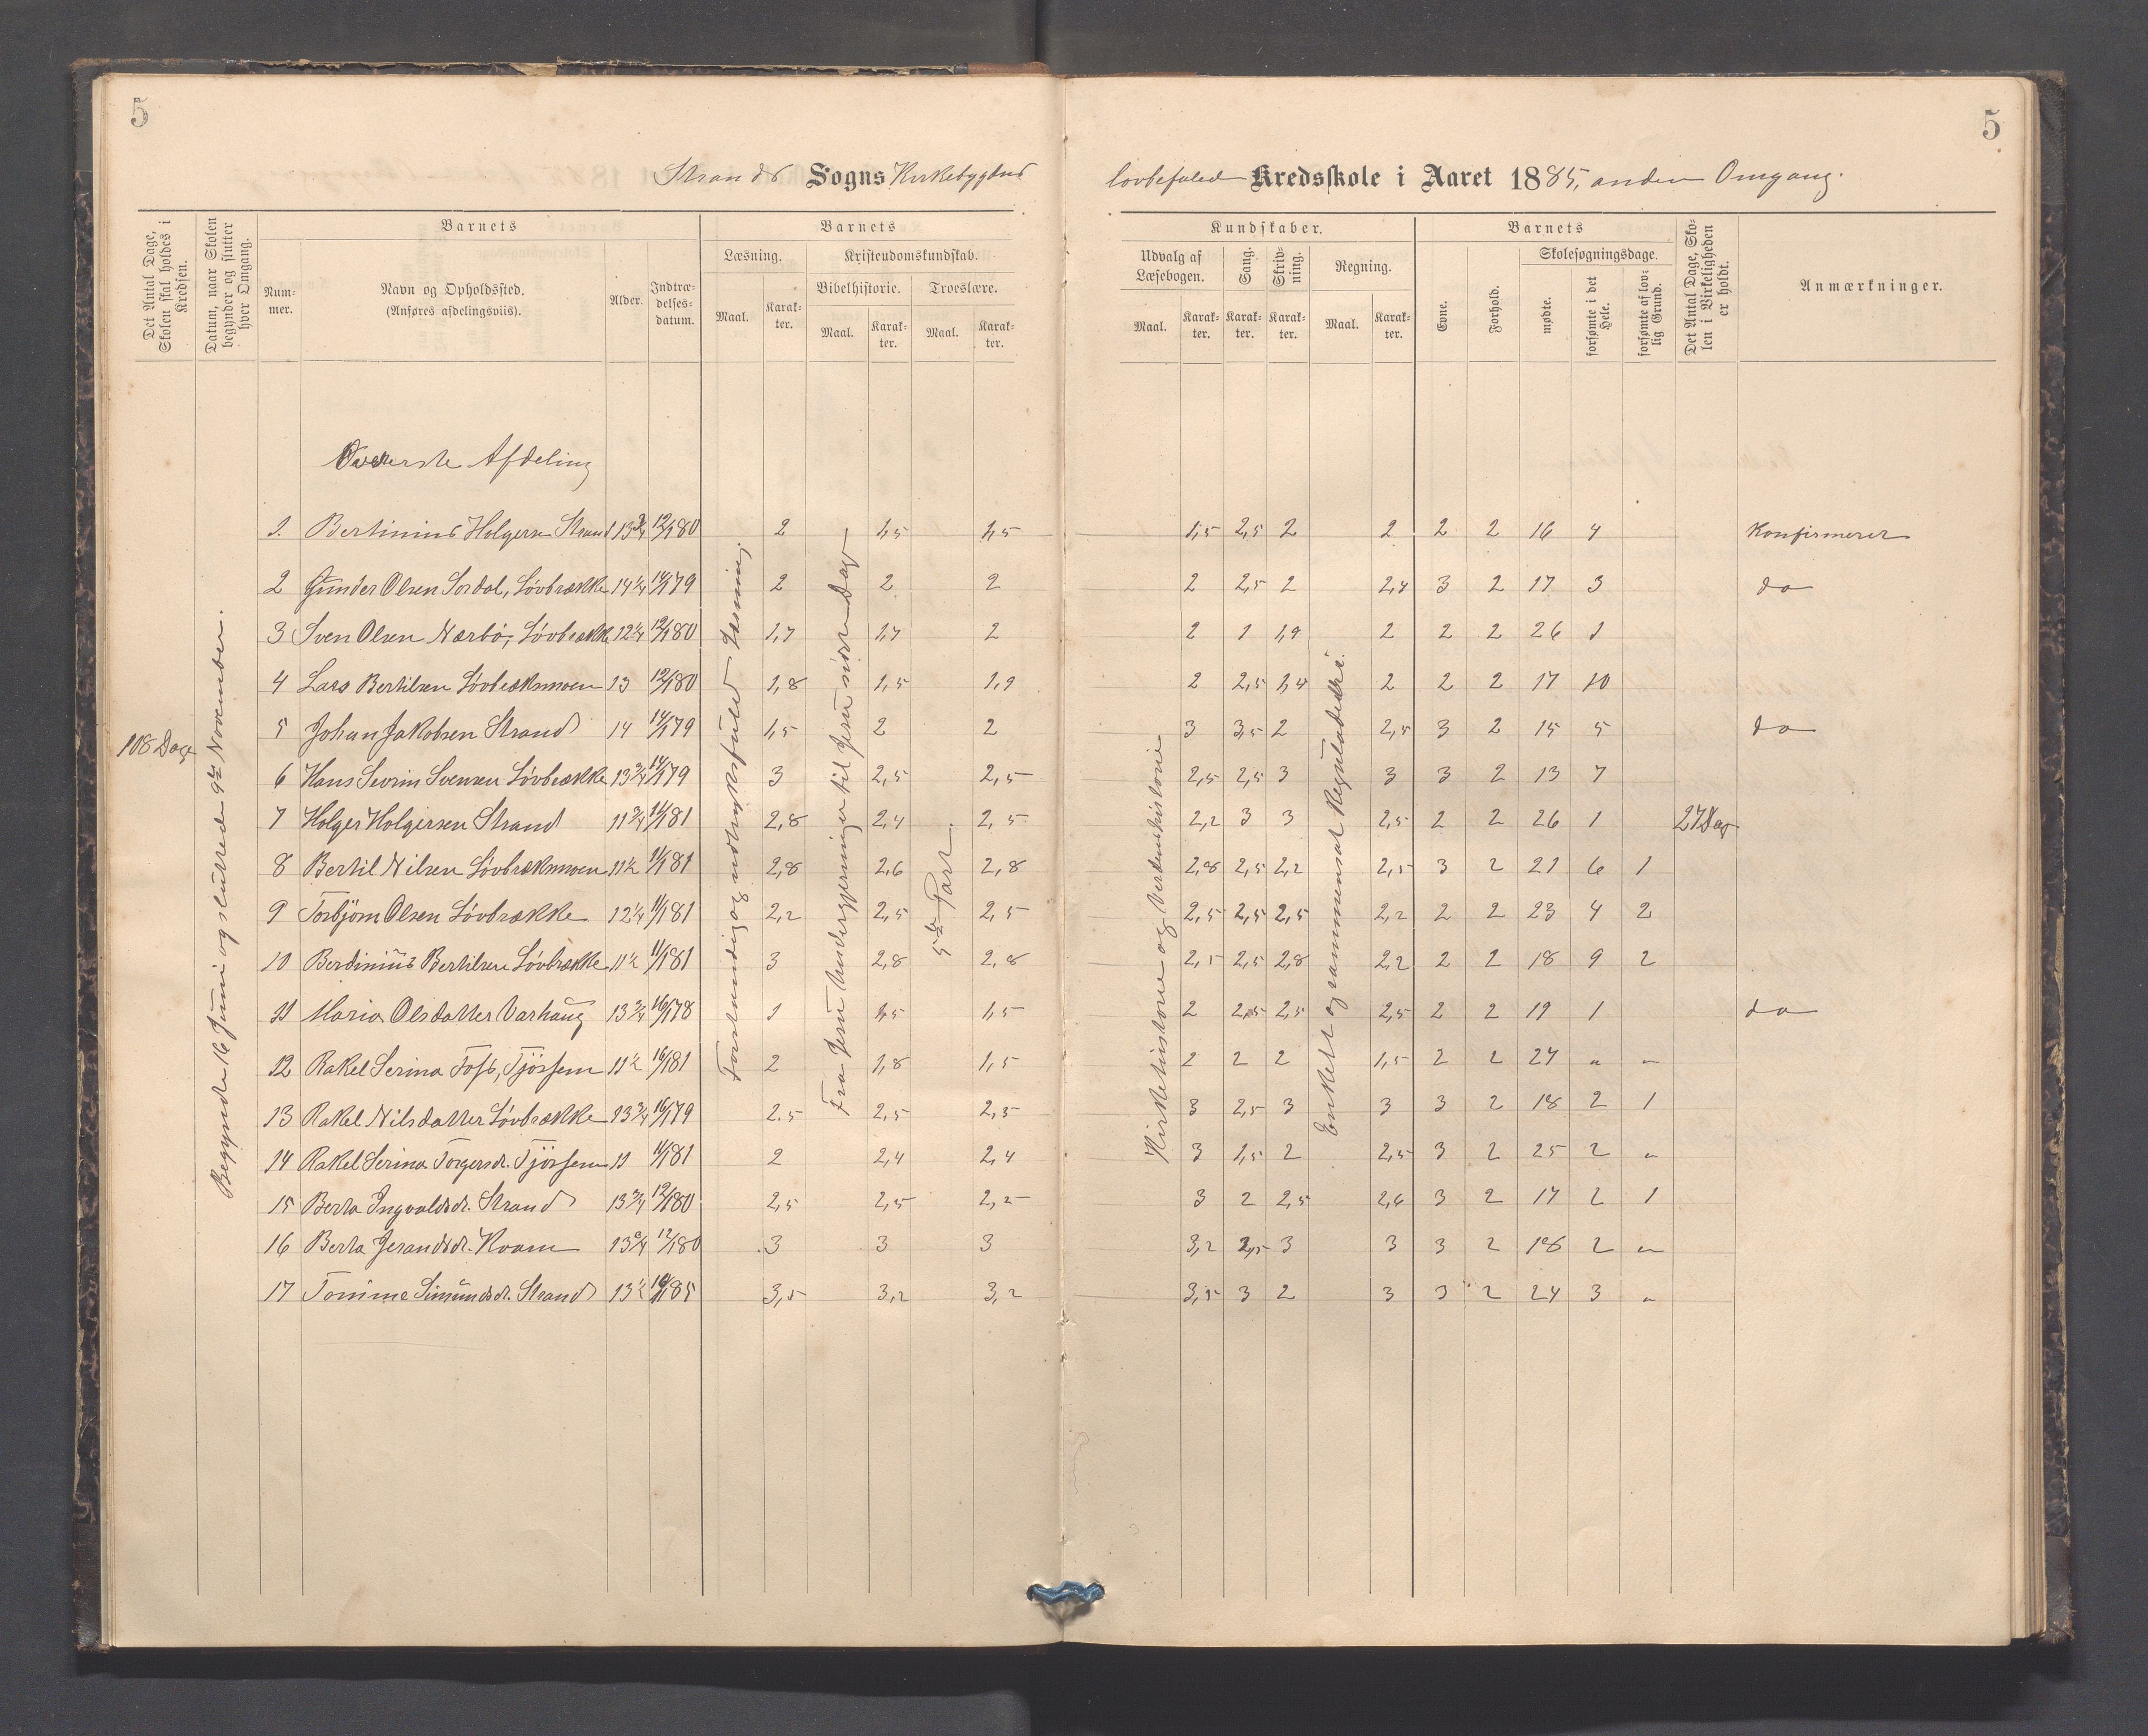 5
5
Strands Sogns Kirkebygdens
lovbefalede Kredsskole i Aaret 1885, anden Omgang.
Det Antal Dage, Skolen skal holdes i Kredsen.
Datum, naar Skolen begynder og slutter hver Omgang.
Barnets
Nummer.
Navn og Opholdssted.
(Anføres afdelingsviis).
Alder.
Indtrædelsesdatum.
Barnets
Læsning.
Maal.
Karakter.
Kristendomskundskab.
Bibelhistorie.
Maal.
Karakter.
Troeslære.
Maal.
Karakter.
Kundskaber.
Udvalg af Læsebogen.
Maal.
Karakter.
Sang.
Karakter.
Skrivning.
Karakter.
Regning.
Maal.
Karakter.
Barnets
Evne.
Forhold.
Skolesøgningsdage.
mødte.
forsømte i det Hele.
forsømte af lovlig Grund.
Det Antal Dage, Skolen i Virkeligheden er holdt.
Anmærkninger.
Øverste Afdeling
108 Dage
Begyndte 16 Juni og sluttede 9de November.
Forstandig og udtryksfuld Læsning.
Fra Jesu Undergjerninger til Jesu sidste Dage
5te Part
Kirkehistorie og Verdenshistorie
Enkelt og sammensat Reguladetri.
27 Dage
1. Bertinius Holgersen Strand 13 3/4 12/1 80 2 1,5 1,5 1,5 2,5 2 2 2 2 16 4 Konfirmeret
2 Gunder Olsen Sordal, Løvbrække 14 1/4 14/1 79 2 2 2 2 2,5 2 2,4 3 2 17 3 do
3 Sven Olsen Nærbø, Løvbrække 12 1/4 12/1 80 1,7 1,7 2 2 1 1,9 2 2 2 26 1
4 Lars Bertilsen Løvbrækmoen 13 12/1 80 1,8 1,5 1,9 2 2,5 1,4 2 2 2 17 10
5 Johan Jakobsen Strand 14 14/1 79 1,5 2 2 3 3,5 2 2,5 3 2 15 5 do
6 Hans Sevrin Svensen Løvbrække 13 3/4 14/1 79 3 2,5 2,5 2,5 2,5 3 3 3 2 13 7
7 Holger Holgersen Strand 11 3/4 11/1 81 2,8 2,4 2,5 2,2 3 3 2,5 2 2 26 1
8 Bertil Nilsen Løvbrækmoen 11 1/2 11/1 81 2,8 2,6 2,8 2,8 2,5 2,2 2,5 3 2 21 6 1
9 Torbjørn Olsen Løvbrække 12 1/4 11/1 81 2,2 2,5 2,5 2,5 2,5 2,5 2,2 2 2 23 4 2
10 Berdinius Bertilsen Løvbrække 11 1/2 11/1 81 3 2,8 2,8 2,5 2,5 2,8 2,2 2 2 18 9 2
11 Maria Olsdatter Varhaug 13 3/4 16/1 78 1 1,5 1,5 2 2,5 2,5 2,5 2 2 19 1 do
12 Rakel Serina Fos, Tjøssem 11 1/2 16/1 81 2 1,8 1,5 2 2 2 1,5 2 2 27 " "
13 Rakel Nilsdatter Løvbrække 13 3/4 16/1 79 2.5 2,5 2,5 3 2,5 3 3 3 2 18 2 1
14 Rakel Serina Torgersdr. Tjøssem 11 11/1 81 2 2,4 2,4 3 1,5 2 2,5 3 2 25 2 "
15 Berta Ingvaldsdr. Strand 13 3/4 12/1 80 2,5 2,5 2,2 3 2 2,5 2,6 3 2 17 2 1
16 Berta Jerandsdr. Kvam 13 3/4 12/1 80 3 3 3 3,2 2,5 3 3 3 2 18 2 "
17 Tomine Simundsdr. Strand 13 1/2 85 3,5 3,2 3,2 3,5 3 2 3 3 2 24 3 "